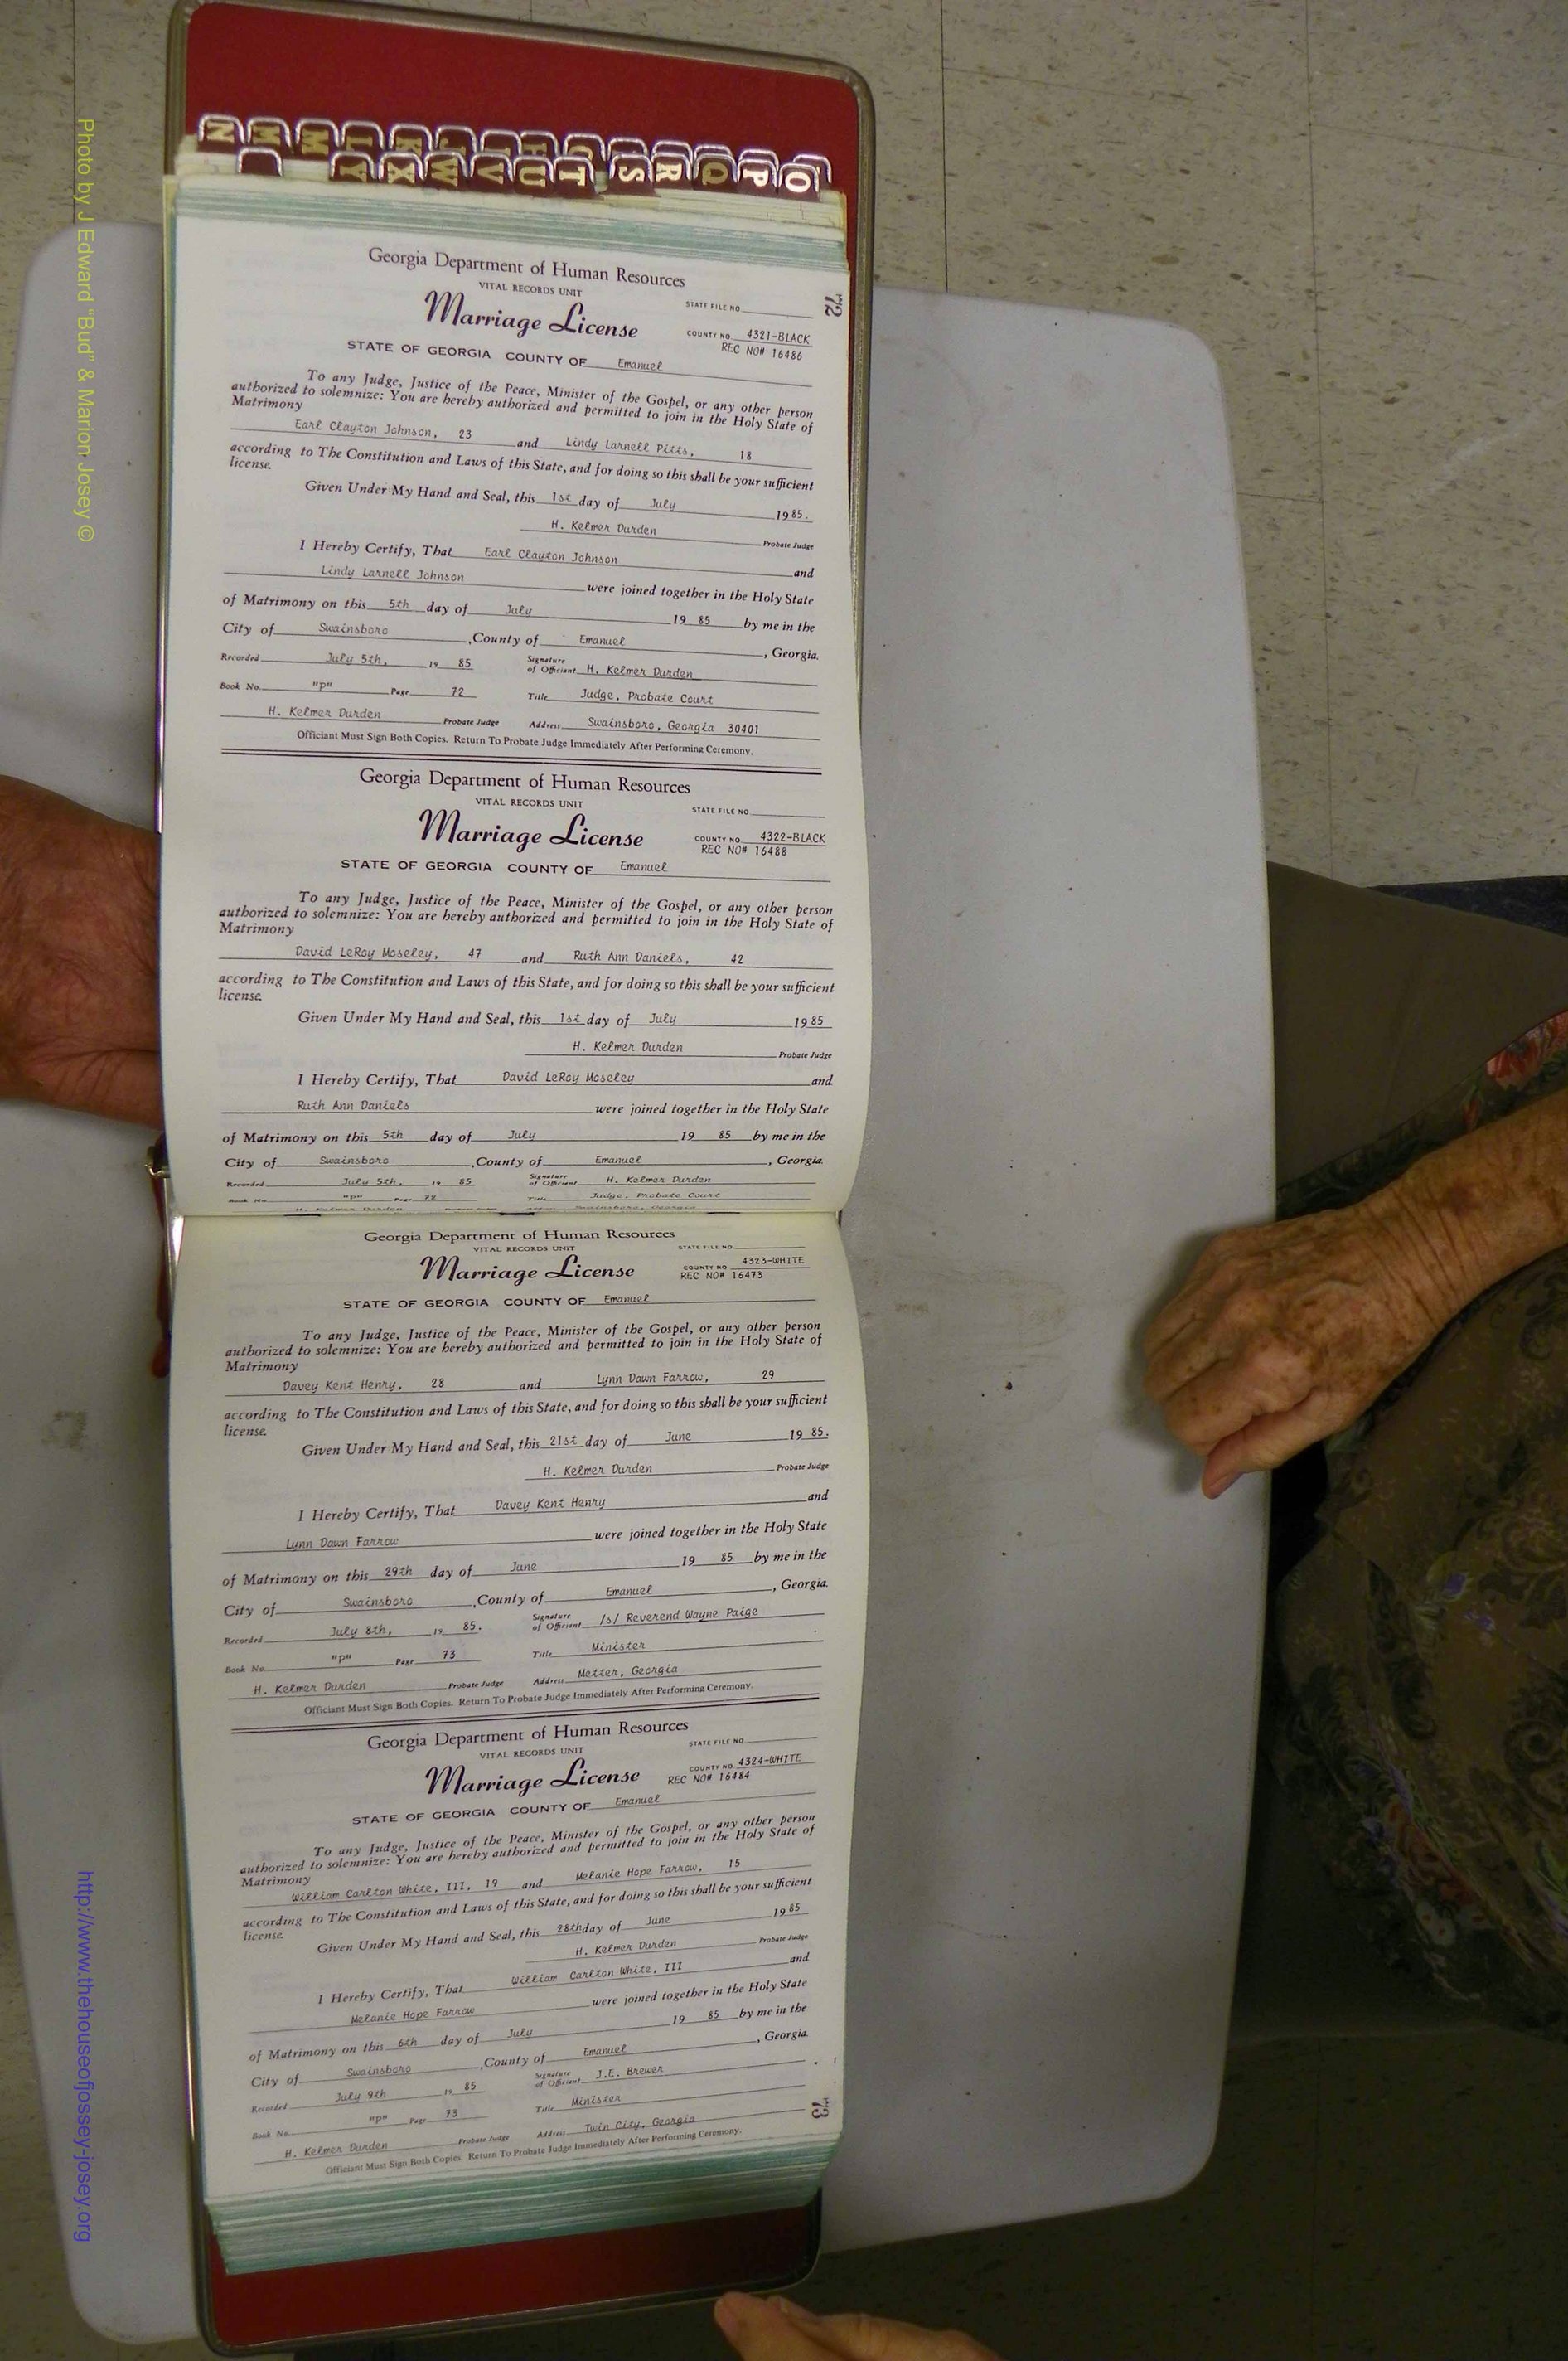 Photo by J Edward "Bud" & Marion Josey ©
http://www.thehouseofjossey-josey.org
N M M L K J I H G
Y X W V U T S R Q P O
72
Georgia Department of Human Resources
VITAL RECORDS UNIT
STATE FILE NO.
Marriage License
COUNTY NO. 4321-BLACK
REC NO# 16486
STATE OF GEORGIA COUNTY OF Emanuel
To any Judge, Justice of the Peace, Minister of the Gospel, or any other person
authorized to solemnize: You are hereby authorized and permitted to join in the Holy State of
Matrimony
Earl Clayton Johnson, 23 and Lindy Larnell Pitts, 18
according to The Constitution and Laws of this State, and for doing so this shall be your sufficient
license.
Given Under My Hand and Seal, this 1st day of July 1985.
H. Kelmer Durden Probate Judge
I Hereby Certify, That Earl Clayton Johnson and
Lindy Larnell Johnson were joined together in the Holy State
of Matrimony on this 5th day of July 19 85 by me in the
City of Swainsboro, County of Emanuel, Georgia.
Recorded July 5th, 19 85 Signature of Officiant H. Kelmer Durden
Book No. "p" Page 72 Title Judge, Probate Court
H. Kelmer Durden Probate Judge Address Swainsboro, Georgia 30401
Officiant Must Sign Both Copies. Return To Probate Judge Immediately After Performing Ceremony.
Georgia Department of Human Resources
VITAL RECORDS UNIT
STATE FILE NO.
Marriage License
COUNTY NO. 4322-BLACK
REC NO# 16488
STATE OF GEORGIA COUNTY OF Emanuel
To any Judge, Justice of the Peace, Minister of the Gospel, or any other person
authorized to solemnize: You are hereby authorized and permitted to join in the Holy State of
Matrimony
David LeRoy Moseley, 47 and Ruth Ann Daniels, 42
according to The Constitution and Laws of this State, and for doing so this shall be your sufficient
license.
Given Under My Hand and Seal, this 1st day of July 1985
H. Kelmer Durden Probate Judge
I Hereby Certify, That David LeRoy Moseley and
Ruth Ann Daniels were joined together in the Holy State
of Matrimony on this 5th day of July 19 85 by me in the
City of Swainsboro, County of Emanuel, Georgia.
Recorded July 5th, 19 85 Signature of Officiant H. Kelmer Durden
Book No. "p" Page 72 Title Judge, Probate Court
H. Kelmer Durden Probate Judge Swainsboro, Georgia
Georgia Department of Human Resources
VITAL RECORDS UNIT
STATE FILE NO.
Marriage License
COUNTY NO. 4323-WHITE
REC NO# 16473
STATE OF GEORGIA COUNTY OF Emanuel
To any Judge, Justice of the Peace, Minister of the Gospel, or any other person
authorized to solemnize: You are hereby authorized and permitted to join in the Holy State of
Matrimony
Davey Kent Henry, 28 and Lynn Dawn Farrow, 29
according to The Constitution and Laws of this State, and for doing so this shall be your sufficient
license.
Given Under My Hand and Seal, this 21st day of June 19 85.
H. Kelmer Durden Probate Judge
I Hereby Certify, That Davey Kent Henry and
Lynn Dawn Farrow were joined together in the Holy State
of Matrimony on this 29th day of June 19 85 by me in the
City of Swainsboro, County of Emanuel, Georgia.
Recorded July 8th, 19 85. Signature of Officiant /s/ Reverend Wayne Paige
Book No. "p" Page 73 Title Minister
H. Kelmer Durden Probate Judge Address Metter, Georgia
Officiant Must Sign Both Copies. Return To Probate Judge Immediately After Performing Ceremony.
Georgia Department of Human Resources
VITAL RECORDS UNIT
STATE FILE NO.
Marriage License
COUNTY NO. 4324-WHITE
REC NO# 16484
STATE OF GEORGIA COUNTY OF Emanuel
To any Judge, Justice of the Peace, Minister of the Gospel, or any other person
authorized to solemnize: You are hereby authorized and permitted to join in the Holy State of
Matrimony
William Carlton White, III, 19 and Melanie Hope Farrow, 15
according to The Constitution and Laws of this State, and for doing so this shall be your sufficient
license.
Given Under My Hand and Seal, this 28th day of June 1985
H. Kelmer Durden Probate Judge
I Hereby Certify, That William Carlton White, III and
Melanie Hope Farrow were joined together in the Holy State
of Matrimony on this 6th day of July 19 85 by me in the
City of Swainsboro, County of Emanuel, Georgia.
Recorded July 9th 19 85 Signature of Officiant J.E. Brewer
Book No. "p" Page 73 Title Minister
H. Kelmer Durden Probate Judge Address Twin City, Georgia
Officiant Must Sign Both Copies. Return To Probate Judge Immediately After Performing Ceremony.
73